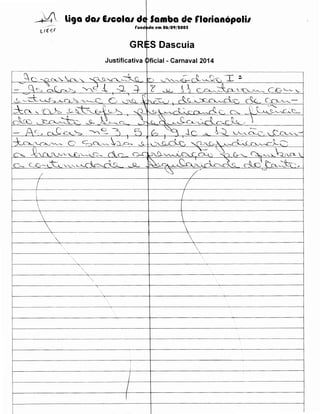 Liga das Escolas de Samba de Florianópolis
LIESF
Fundada em 06/09/2005
GRES Dascuia
Justificativa Oficial - Carnaval 2014
Ao passar perante o módulo I:
- As alas nº 1, 2, 7, 8 e 11 cantaram com
entusiasmo o refrão, deixando de can-
tar as estrofes, prejudicando a fluência
do canto e sua regularidade!
- As alas nº 3, 5, 6, 9, 10 e 12 não can-
taram o samba enredo prejudicando
a harmonia da agremiação por quebrar
a continuidade e regularidade do canto.